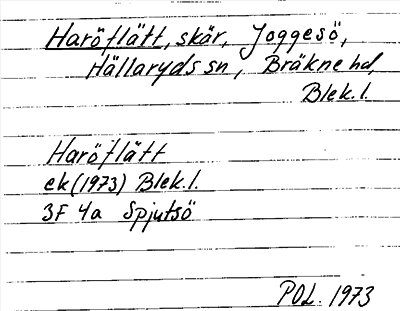 Haröflätt, skär, Joggesö,
Hällaryds sn, Bräkne hd,
Blek. l.
Haröflätt
ek (1973) Blek. l.
3F 4a Spjutsö
POL. 1973